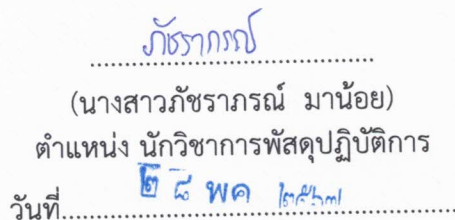 ภัชราภรณ์
(นางสาวภัชราภรณ์ มาน้อย)
ตำแหน่ง นักวิชาการพัสดุปฏิบัติการ
วันที่ ๒๘ พค ๒๕๖๗